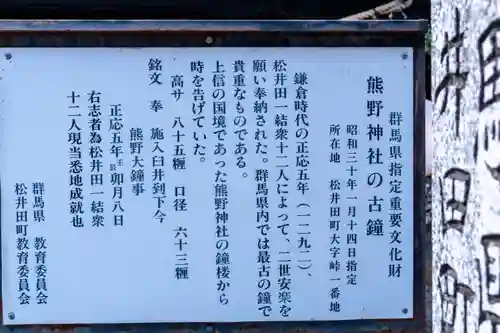 群馬県指定重要文化財
熊野神社の古鐘
昭和三十年一月十四日指定
所在地 松井田町大字峠一番地
鎌倉時代の正応五年(一二九二)、
松井田一結衆十二人によって、二世安楽を
願い奉納された。群馬県内では最古の鐘で
貴重なものである。
上信の国境であった熊野神社の鐘楼から
時を告げていた。
高サ 八十五糎 口径 六十三糎
銘文 奉 施入臼井到下今
熊野大鐘事
正応五年壬辰卯月八日
右志者為松井田一結衆
十二人現当悉地成就也
群馬県 教育委員会
松井田町教育委員会
井田町